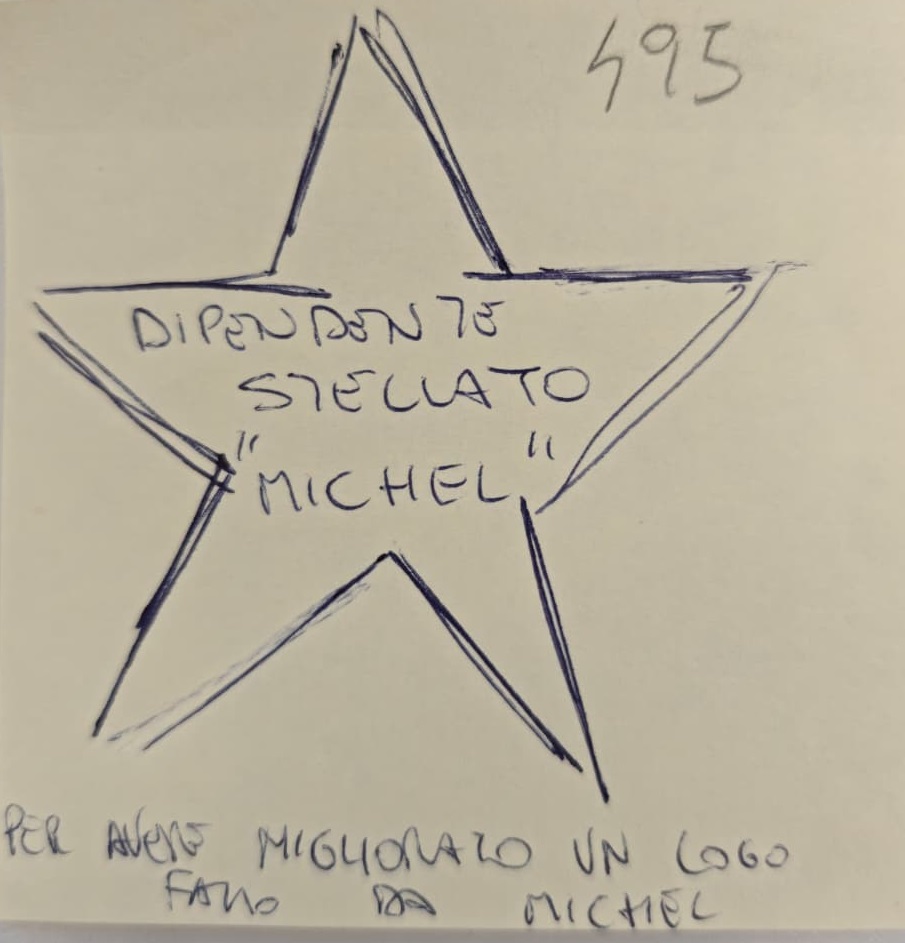 495
DIPENDENTE
STELLATO
"MICHEL"
PER AVERE MIGLIORATO UN LOGO
FATTO DA MICHEL